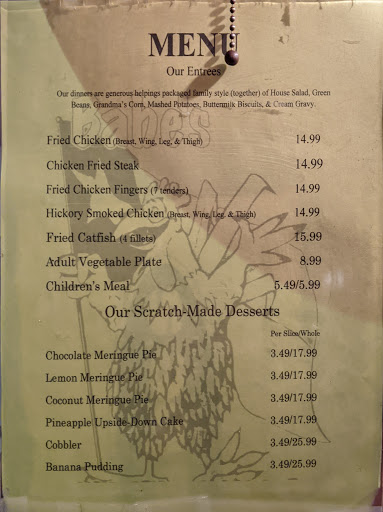 MENU
Our Entrees
Our dinners are generous helpings packaged family style (together) of House Salad, Green
Beans, Grandma's Corn, Mashed Potatoes, Buttermilk Biscuits, & Cream Gravy.
Babe's
Fried Chicken (Breast, Wing, Leg, & Thigh) 14.99
Chicken Fried Steak 14.99
Fried Chicken Fingers (7 tenders) 14.99
Hickory Smoked Chicken (Breast, Wing, Leg, & Thigh) 14.99
Fried Catfish (4 fillets) 15.99
Adult Vegetable Plate 8.99
Children's Meal 5.49/5.99
Our Scratch-Made Desserts
Per Slice/Whole
Chocolate Meringue Pie 3.49/17.99
Lemon Meringue Pie 3.49/17.99
Coconut Meringue Pie 3.49/17.99
Pineapple Upside-Down Cake 3.49/17.99
Cobbler 3.49/25.99
Banana Pudding 3.49/25.99